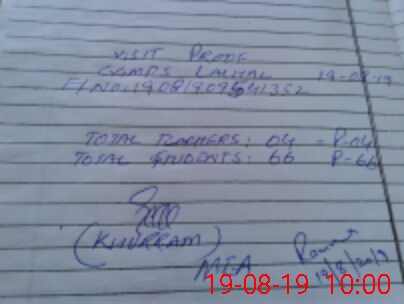 VISIT PROOF
GGMPS LALYAL 19-08-19
TOTAL TEACHERS: 04 - P-04
TOTAL STUDENTS: 66 P-66
(KHURRAM)
MEA
19/8/2019
19-08-19 10:00